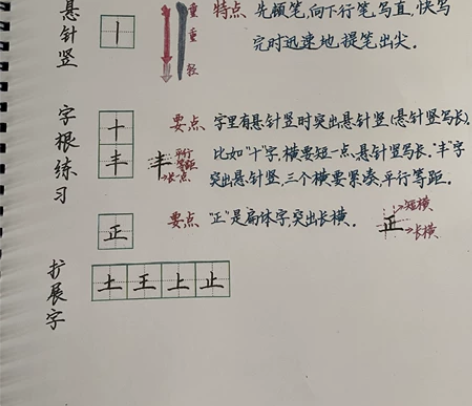 悬针竖
丨
重
重
轻
特点 先顿笔,向下行笔,写直,快写
完时迅速地,提笔出尖.
字根练习
十
丰
丰
平行
等距
长一点
要点 字里有悬针竖时突出悬针竖(悬针竖写长).
比如"十"字,横要短一点,悬针竖写长."丰"字
突出悬针竖,三个横要紧凑,平行等距.
正
要点 "正"是扁体字,突出长横.
正
短横
长横
扩展字
土 王 上 止